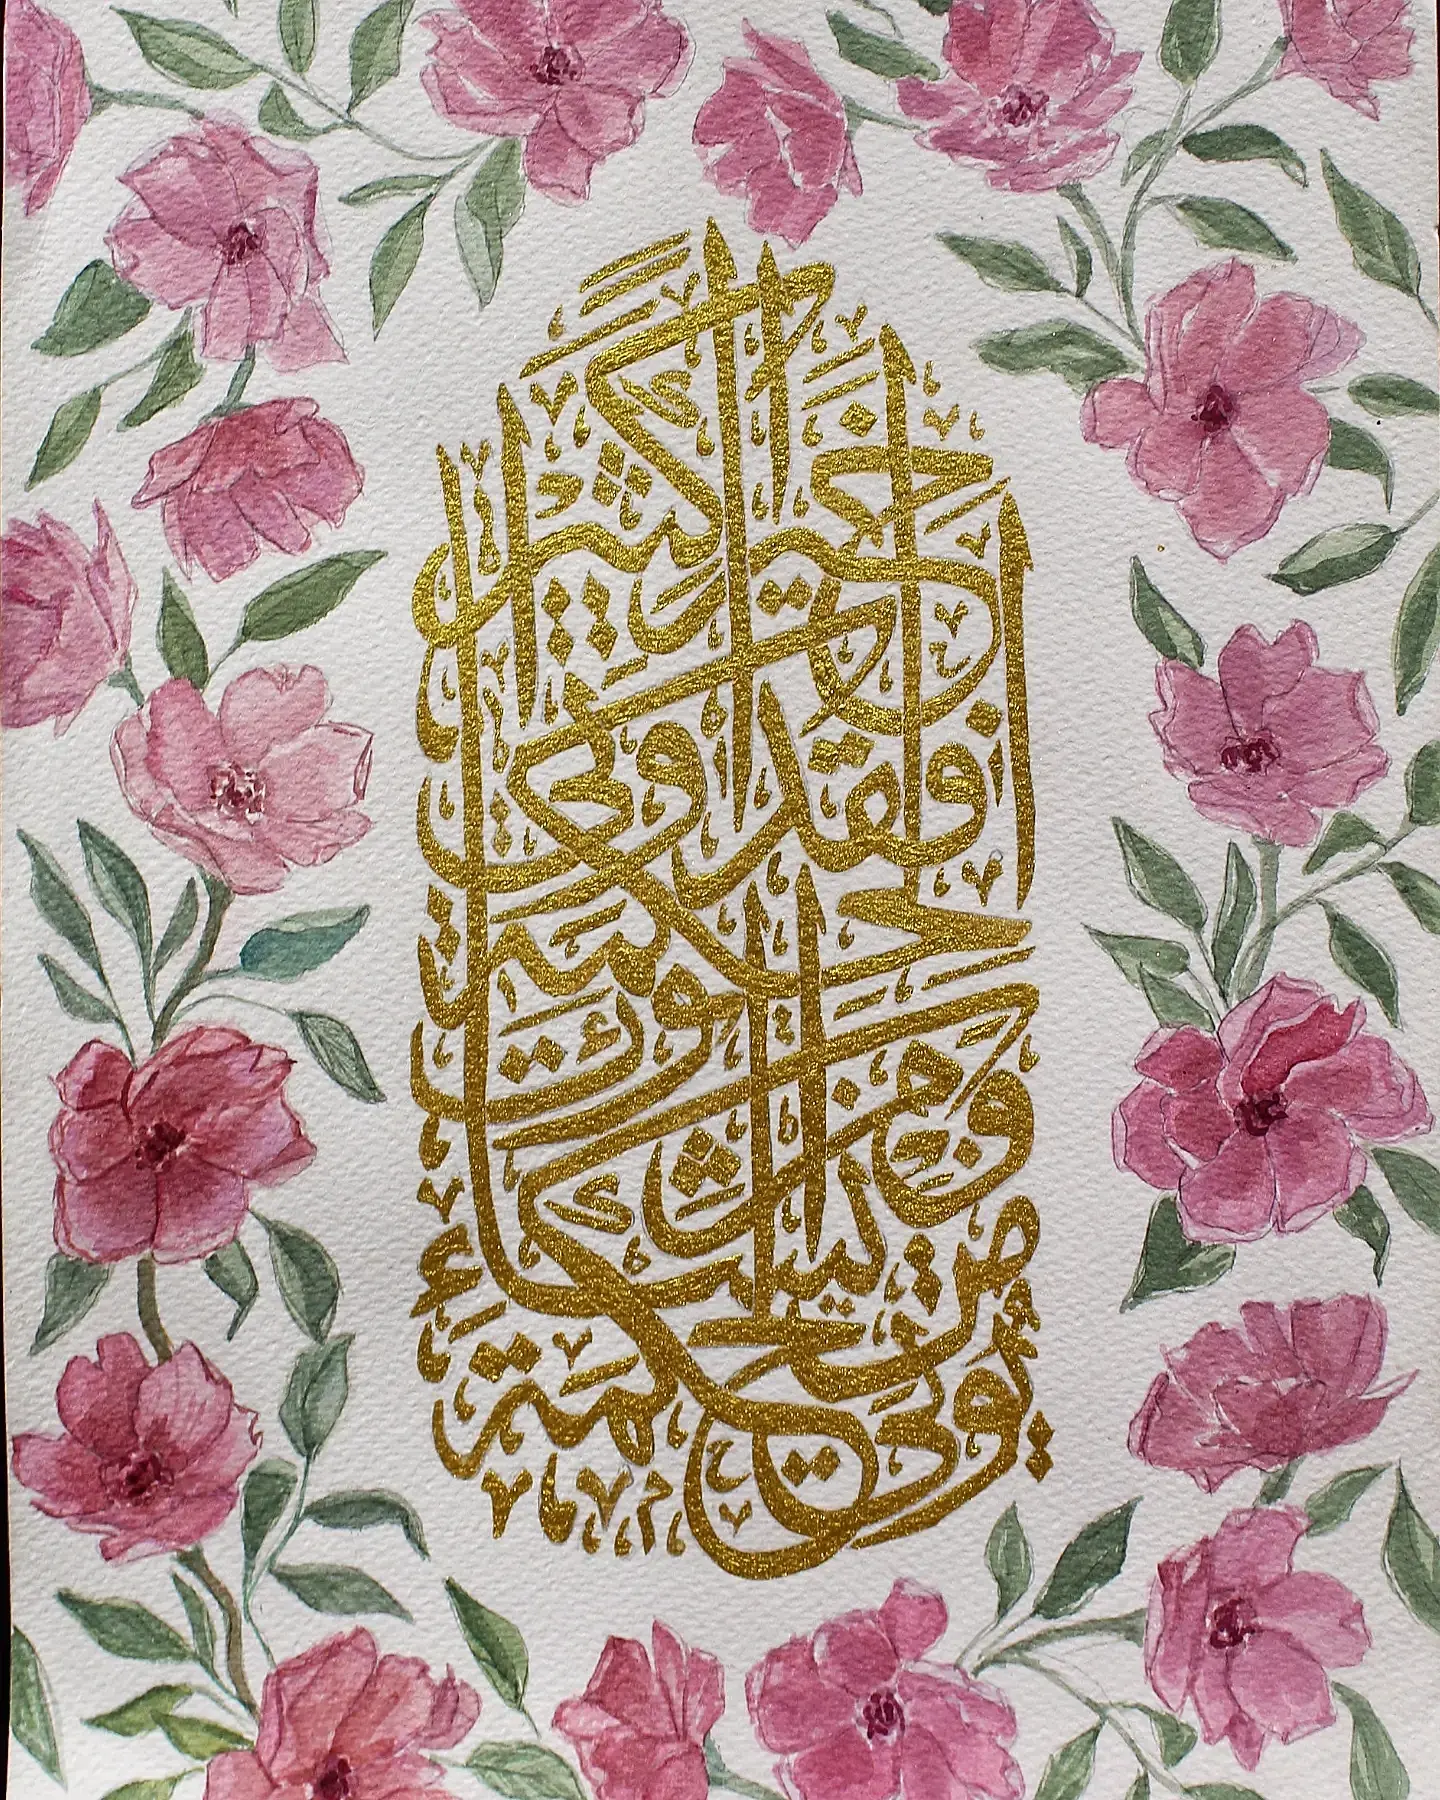 يُؤْتِي الْحِكْمَةَ مَنْ يَشَاءُ
وَمَنْ يُؤْتَ الْحِكْمَةَ
فَقَدْ أُوتِيَ
خَيْرًا كَثِيرًا